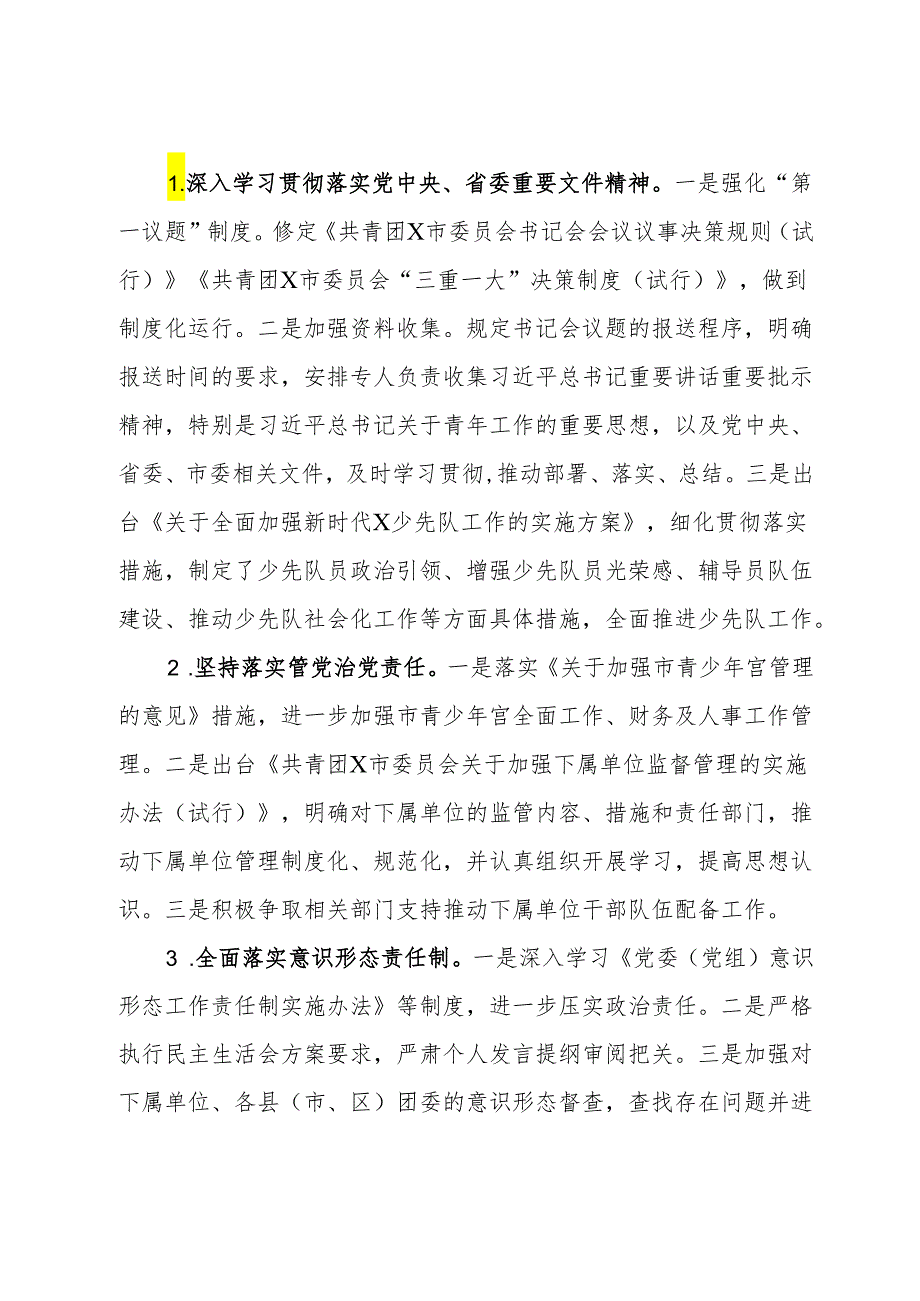 1.深入学习贯彻落实党中央、省委重要文件精神。一是强化“第
一议题”制度。修定《共青团X市委员会书记会会议议事决策规则（试
行）》《共青团X市委员会“三重一大”决策制度（试行）》，做到
制度化运行。二是加强资料收集。规定书记会议题的报送程序，明确
报送时间的要求，安排专人负责收集习近平总书记重要讲话重要批示
精神，特别是习近平总书记关于青年工作的重要思想，以及党中央、
省委、市委相关文件，及时学习贯彻,推动部署、落实、总结。三是出
台《关于全面加强新时代X少先队工作的实施方案》，细化贯彻落实
措施，制定了少先队员政治引领、增强少先队员光荣感、辅导员队伍
建设、推动少先队社会化工作等方面具体措施，全面推进少先队工作。
2 .坚持落实管党治党责任。一是落实《关于加强市青少年宫管理
的意见》措施，进一步加强市青少年宫全面工作、财务及人事工作管
理。二是出台《共青团X市委员会关于加强下属单位监督管理的实施
办法（试行）》，明确对下属单位的监管内容、措施和责任部门，推
动下属单位管理制度化、规范化，并认真组织开展学习，提高思想认
识。三是积极争取相关部门支持推动下属单位干部队伍配备工作。
3 .全面落实意识形态责任制。一是深入学习《党委（党组）意识
形态工作责任制实施办法》等制度，进一步压实政治责任。二是严格
执行民主生活会方案要求，严肃个人发言提纲审阅把关。三是加强对
下属单位、各县（市、区）团委的意识形态督查，查找存在问题并进